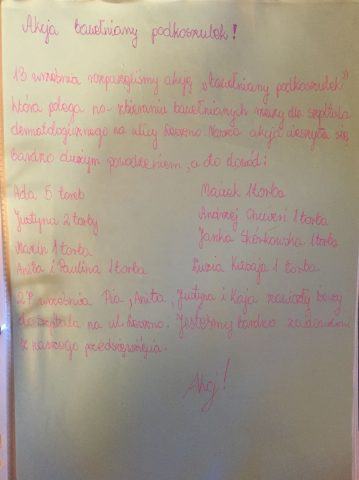 Akcja bawełniany podkoszulek!
13 września rozpoczęliśmy akcję „bawełniany podkoszulek"
która polega na zbieraniu bawełnianych dla szpitala
dermatologicznego na ulicy Leszno Nasza akcja cieszyła się
bardzo dużym powodzeniem, a to dowód:
Ada 5 toreb
Justyna 2 torby
Marcin 1 torba
Anita i Paulina 1 torba
Maciek 1 torba
Andrzej 1 torba
Janka 1 torba
Luzia 1 torba
27 września Pia, Anita, Justyna i Kaja zawiozły
do szpitala na ul. Leszno. Jesteśmy bardzo zadowoleni
z naszego przedsięwzięcia.
Ahoj!